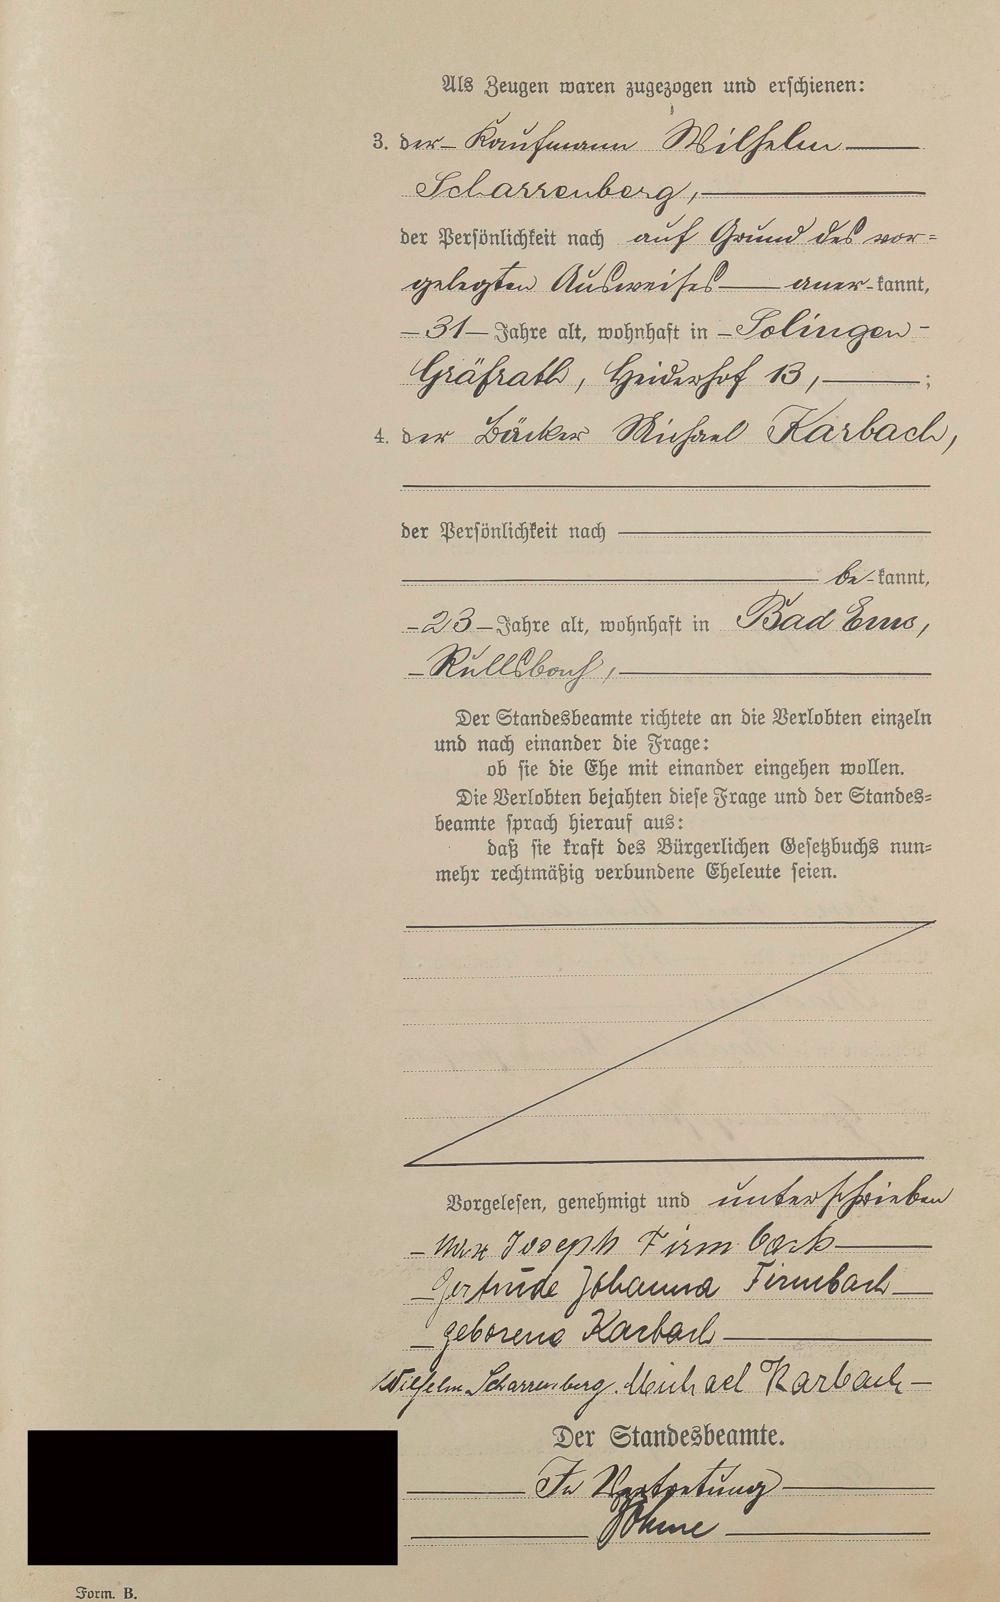 Als Zeugen waren zugezogen und erschienen:
3. der Kaufmann Wilhelm
Scharrenberg,
der Persönlichkeit nach auf Grund des vor=
gelegten Ausweises aner-kannt,
31 Jahre alt, wohnhaft in Solingen-
Gräfrath, Heiderhof 13, ;
4. der Bäcker Michael Karbach,
der Persönlichkeit nach
be-kannt,
23 Jahre alt, wohnhaft in Bad Ems,
Der Standesbeamte richtete an die Verlobten einzeln
und nach einander die Frage:
ob sie die Ehe mit einander eingehen wollen.
Die Verlobten bejahten diese Frage und der Standes=
beamte sprach hierauf aus:
daß sie kraft des Bürgerlichen Gesetzbuchs nun=
mehr rechtmäßig verbundene Eheleute seien.
Vorgelesen, genehmigt und unterschrieben
Joseph Firmbach
Gertrude Johanna Firmbach
geborene Karbach
Wilhelm Scharrenberg. Michael Karbach
Der Standesbeamte.
In Vertretung
Form. B.